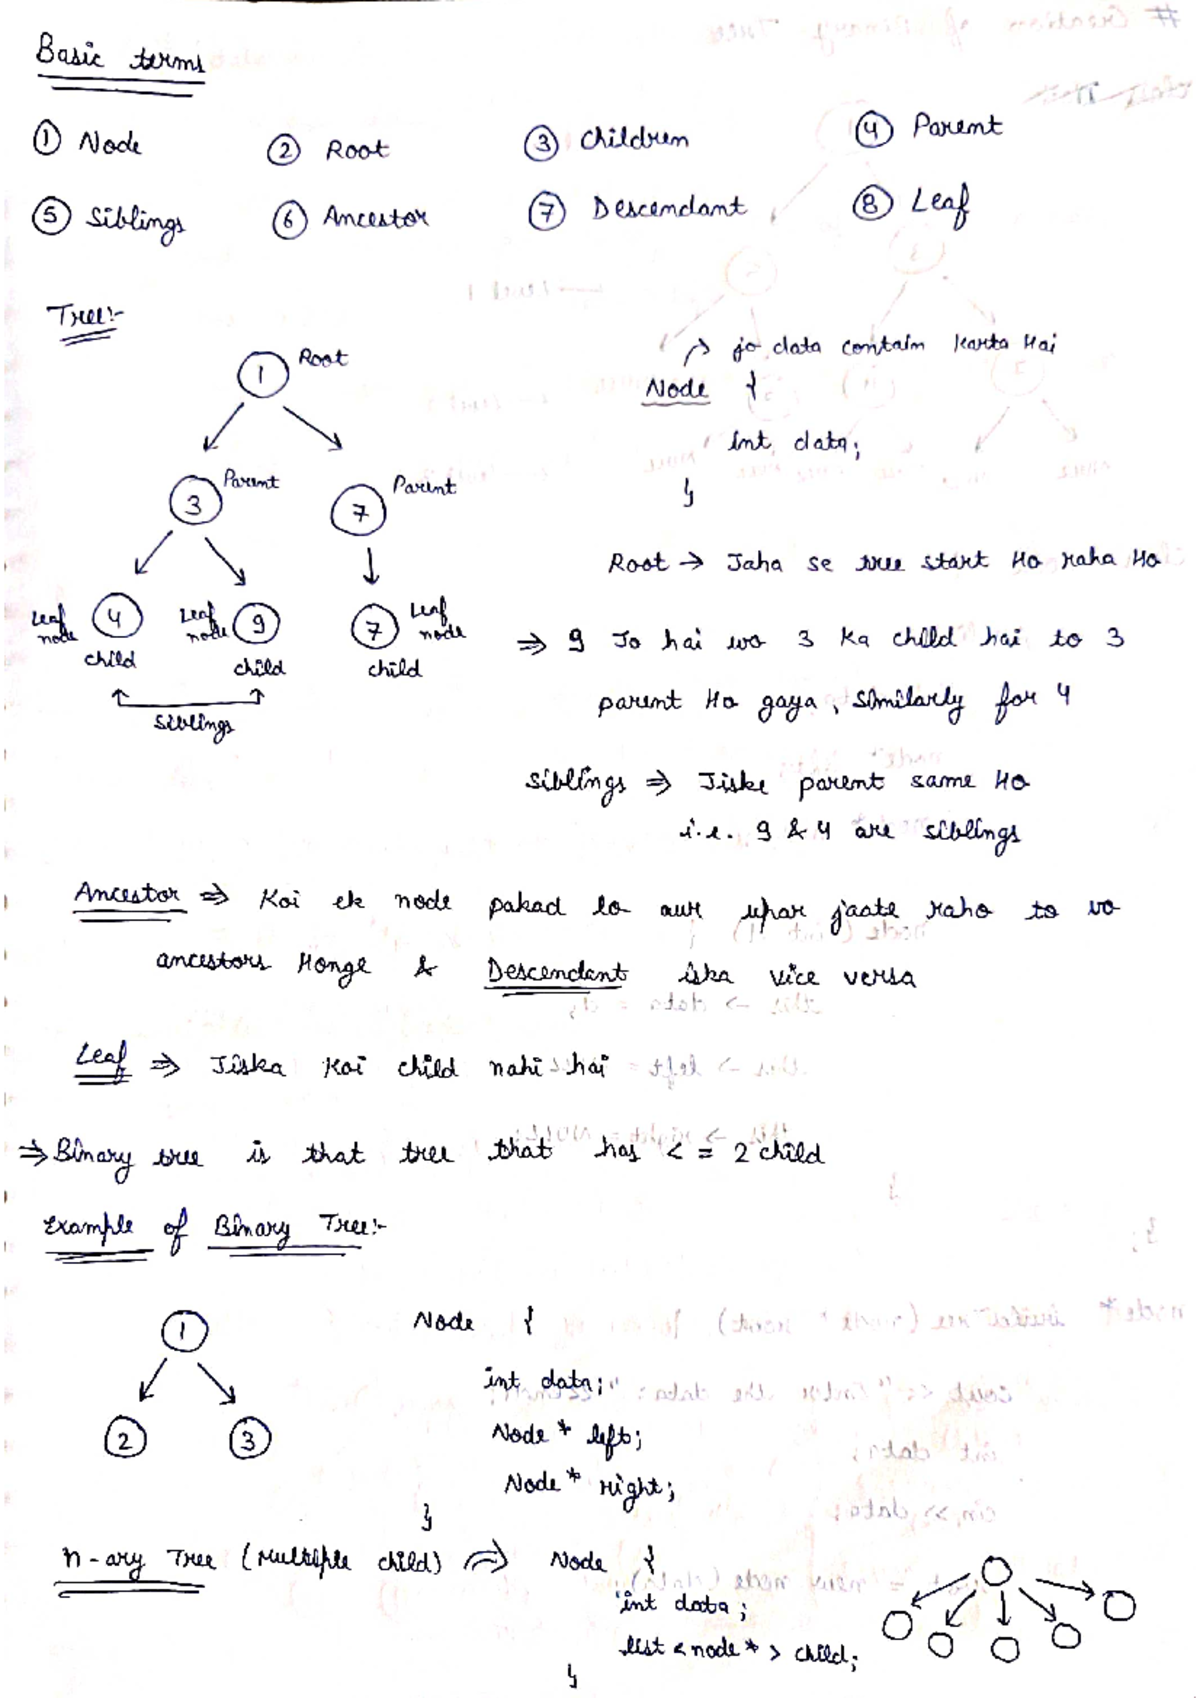 Basic terms
① Node ② Root ③ Children ④ Parent
⑤ Siblings ⑥ Ancestor ⑦ Descendant ⑧ Leaf
Tree:-
1 Root
3 Parent 7 Parent
Leaf node 4 Leaf node 9 7 Leaf node
child child child
Siblings
→ jo data contain karta Hai
Node {
int data;
}
Root → Jaha se tree start Ho raha Ho
⇒ 9 Jo hai wo 3 ka child hai to 3
parent Ho gaya, similarly for 4
Siblings ⇒ Jiske parent same Ho
i.e. 9 & 4 are siblings
Ancestor ⇒ Koi ek node pakad lo aur upar jaate raho to vo
ancestors Honge & Descendant iska vice versa
Leaf ⇒ Jiska Koi child nahi hai
⇒ Binary tree is that tree that has <= 2 child
Example of Binary Tree:-
1
2 3
Node {
int data;
Node* left;
Node* right;
}
n-ary Tree (Multiple child) ⇒ Node {
int data;
list <node*> child;
}